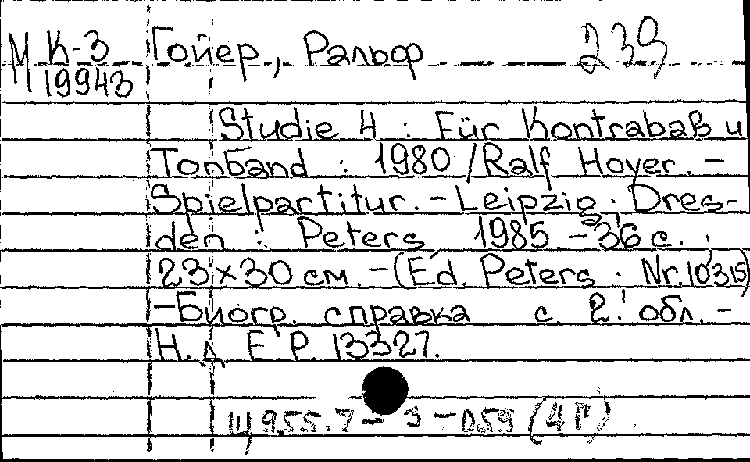 М К-3 Гойер, Ральф 239
19943
Studie 4 : Für Kontrabaß u
Tonband : 1980 / Ralf Hoyer. -
Spielpartitur. - Leipzig ; Dres-
den : Peters 1985 - 36 с. ;
23×30 см. - (Ed. Peters ; Nr. 10315)
- Биогр. справка с 2. обл. -
Н. Д. E. P. 13327.
955.7 - 3 - 059 (4Г)